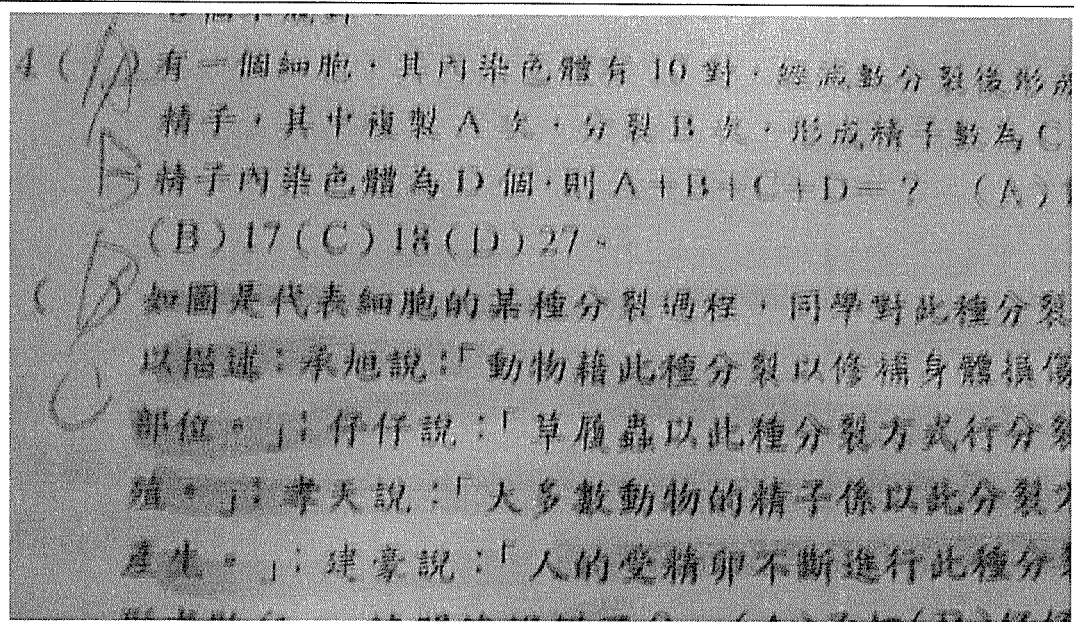 4 ( A ) 有一個細胞，其內染色體有 10 對，經減數分裂後形成
精子，其中複製 A 次，分裂 B 次，形成精子數為 C
B 精子內染色體為 D 個，則 A＋B＋C＋D＝？ (A) 1
(B) 17 (C) 18 (D) 27。
( B ) 如圖是代表細胞的某種分裂過程，同學對此種分裂
C 以描述：承旭說：「動物藉此種分裂以修補身體損傷
部位。」；仔仔說：「草履蟲以此種分裂方式行分裂
殖。」；孝天說：「大多數動物的精子係以此分裂方
產生。」；建豪說：「人的受精卵不斷進行此種分裂